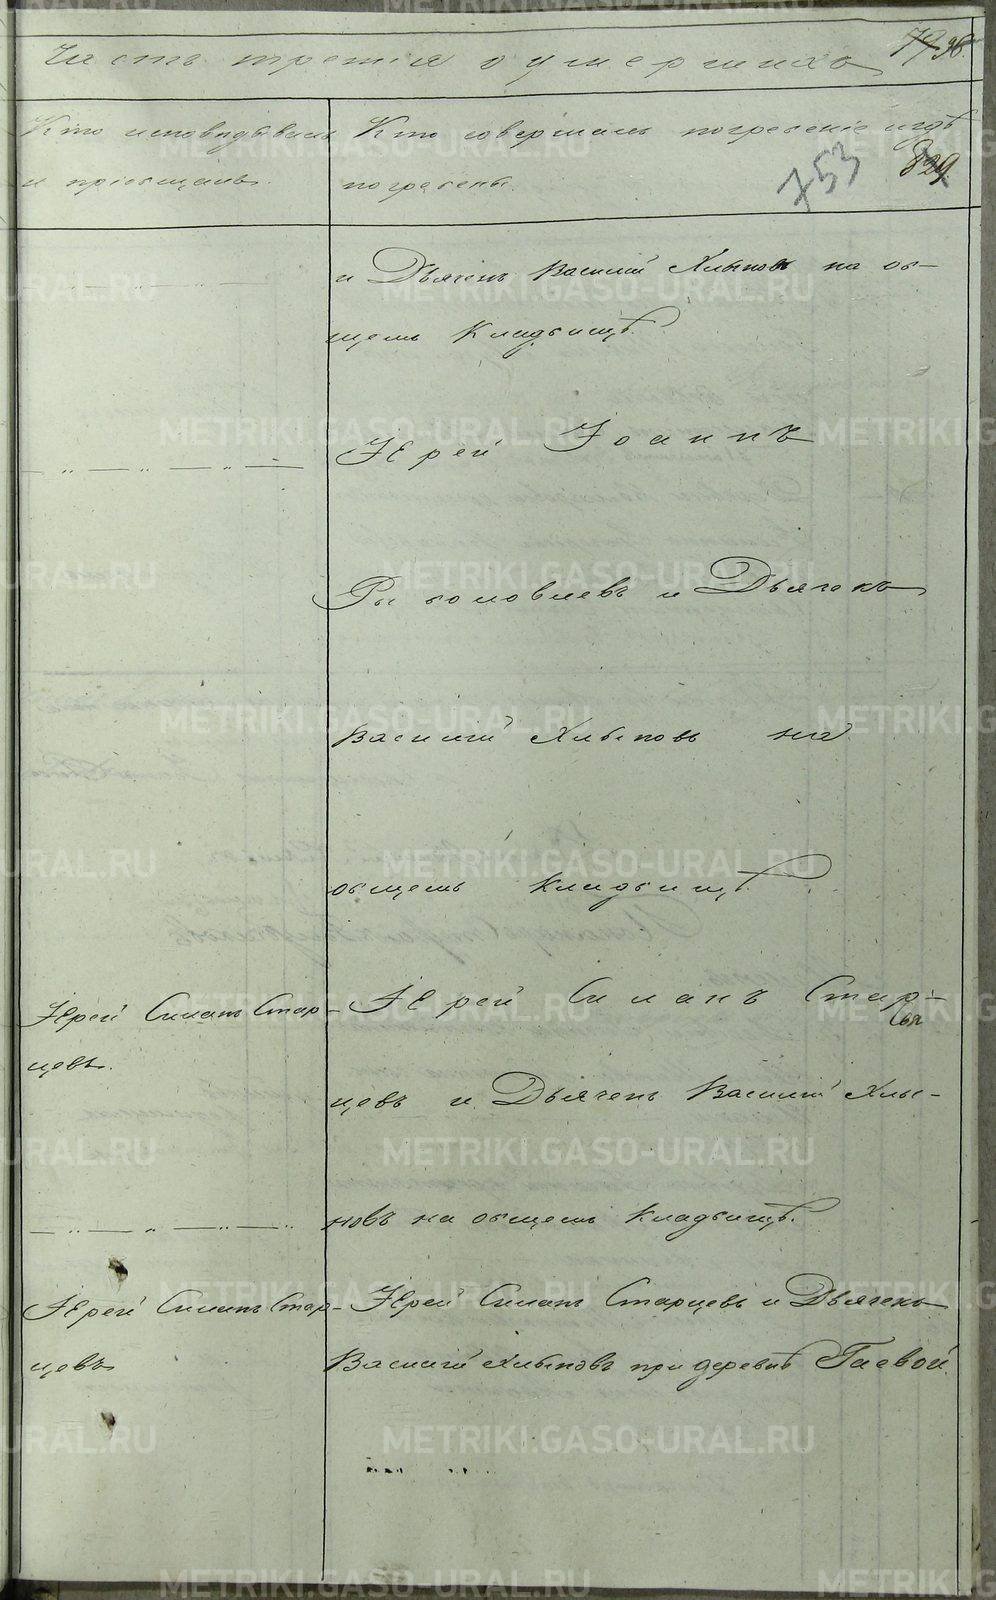 Часть третія о умершихъ
79 98.
Кто исповѣдывалъ
и пріобщалъ.
Кто совершалъ погребеніе и гдѣ
погребены.
753
829
и Дьячекъ Василій Хлыновъ на об-
щемъ кладбищѣ.
Іерей Іоаннъ
и Дьячекъ
Василій Хлыновъ на
общемъ кладбищѣ.
Іерей Силанъ Стар-
цевъ.
Іерей Силанъ Стар-
цевъ и Дьячекъ Василій Хлы-
новъ на общемъ кладбищѣ.
Іерей Силанъ Стар-
цевъ
Іерей Силанъ Старцевъ и Дьячекъ
Василій Хлыновъ при деревнѣ Гаевой.
METRIKI.GASO-URAL.RU